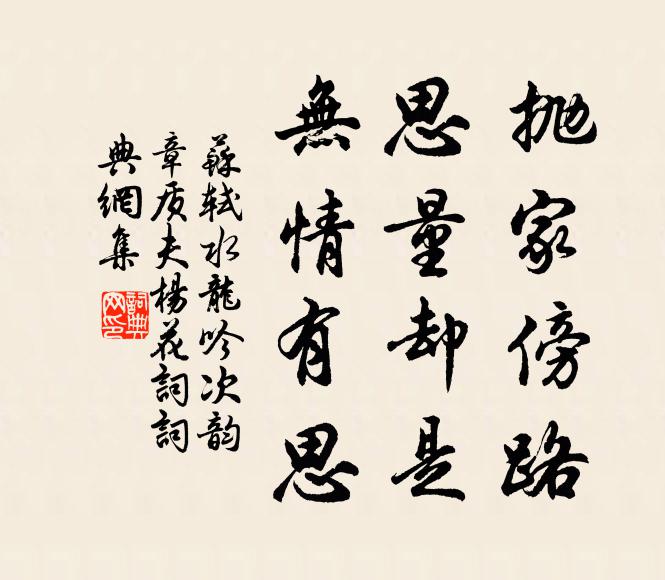 抛家傍路
思量却是
無情有思
蘇軾水龍吟次韵
章质夫楊花詞詞
典網集
詞典网印